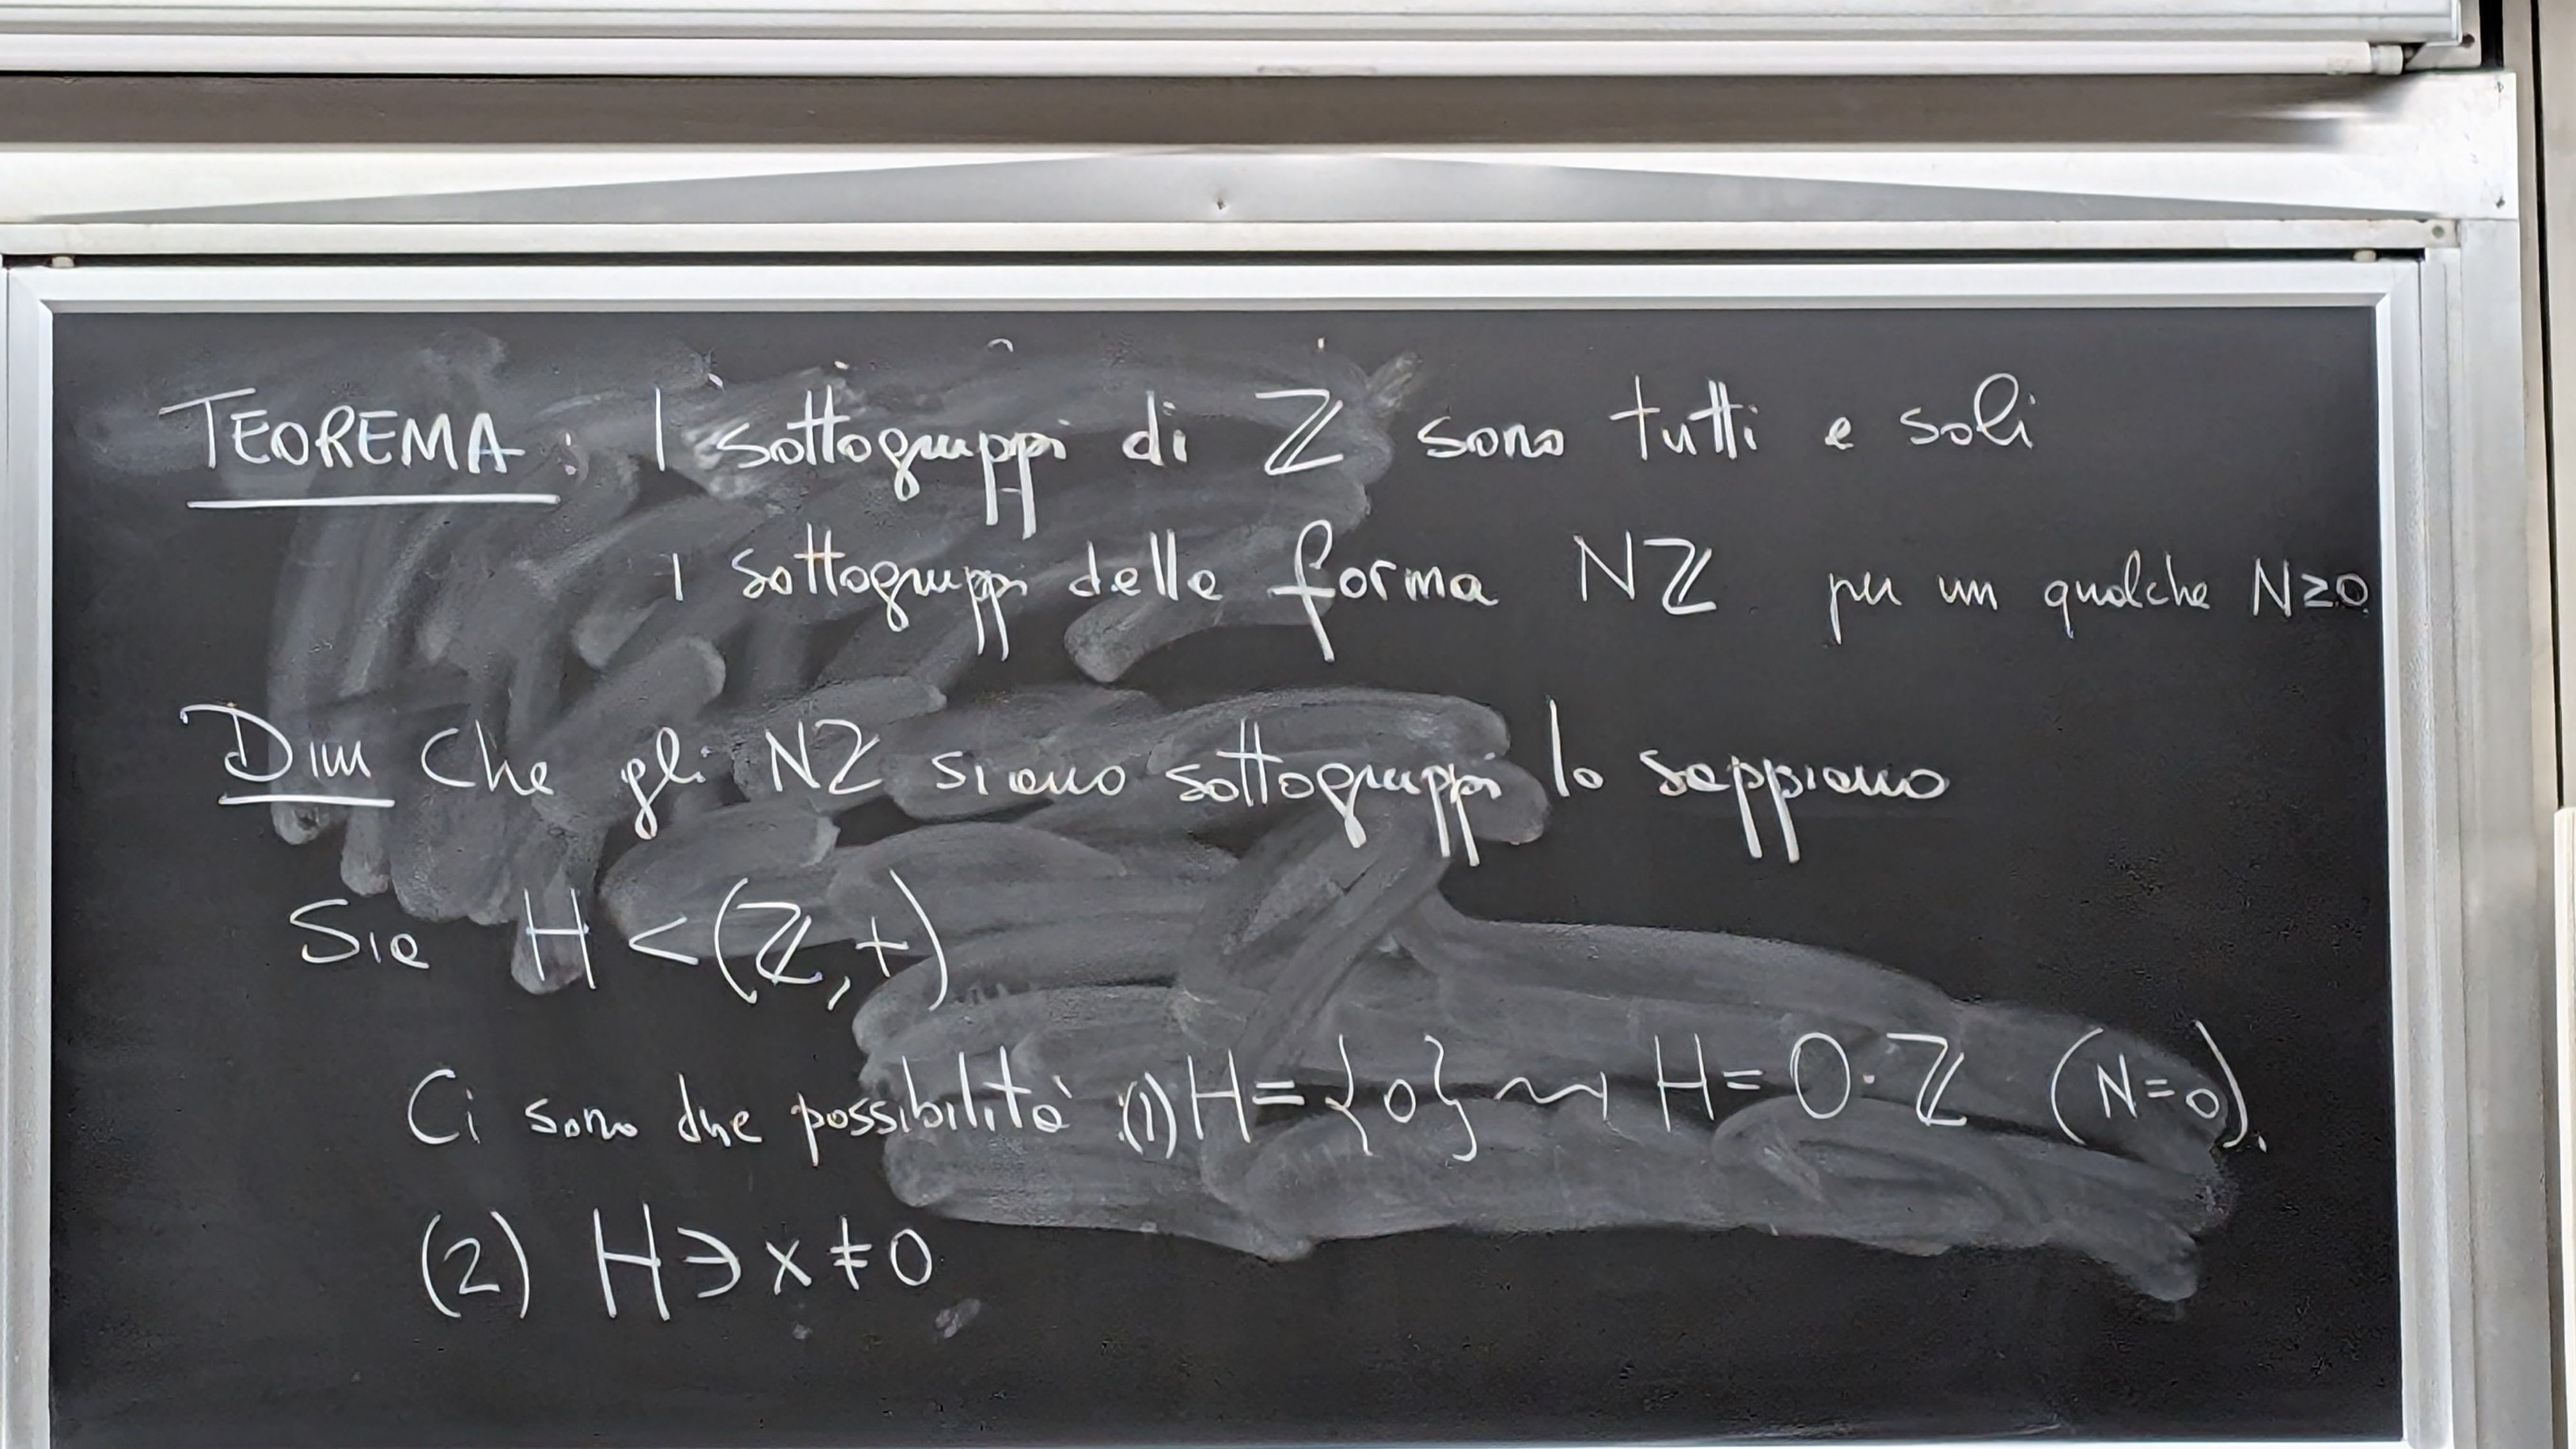 TEOREMA: I sottogruppi di ℤ sono tutti e soli
i sottogruppi della forma Nℤ per un qualche N≥0
Dim Che gli Nℤ siano sottogruppi lo sappiamo
Sia H < (ℤ,+)
Ci sono due possibilità: (1) H = {0} ⇝ H = 0·ℤ (N=0).
(2) H ∋ x ≠ 0